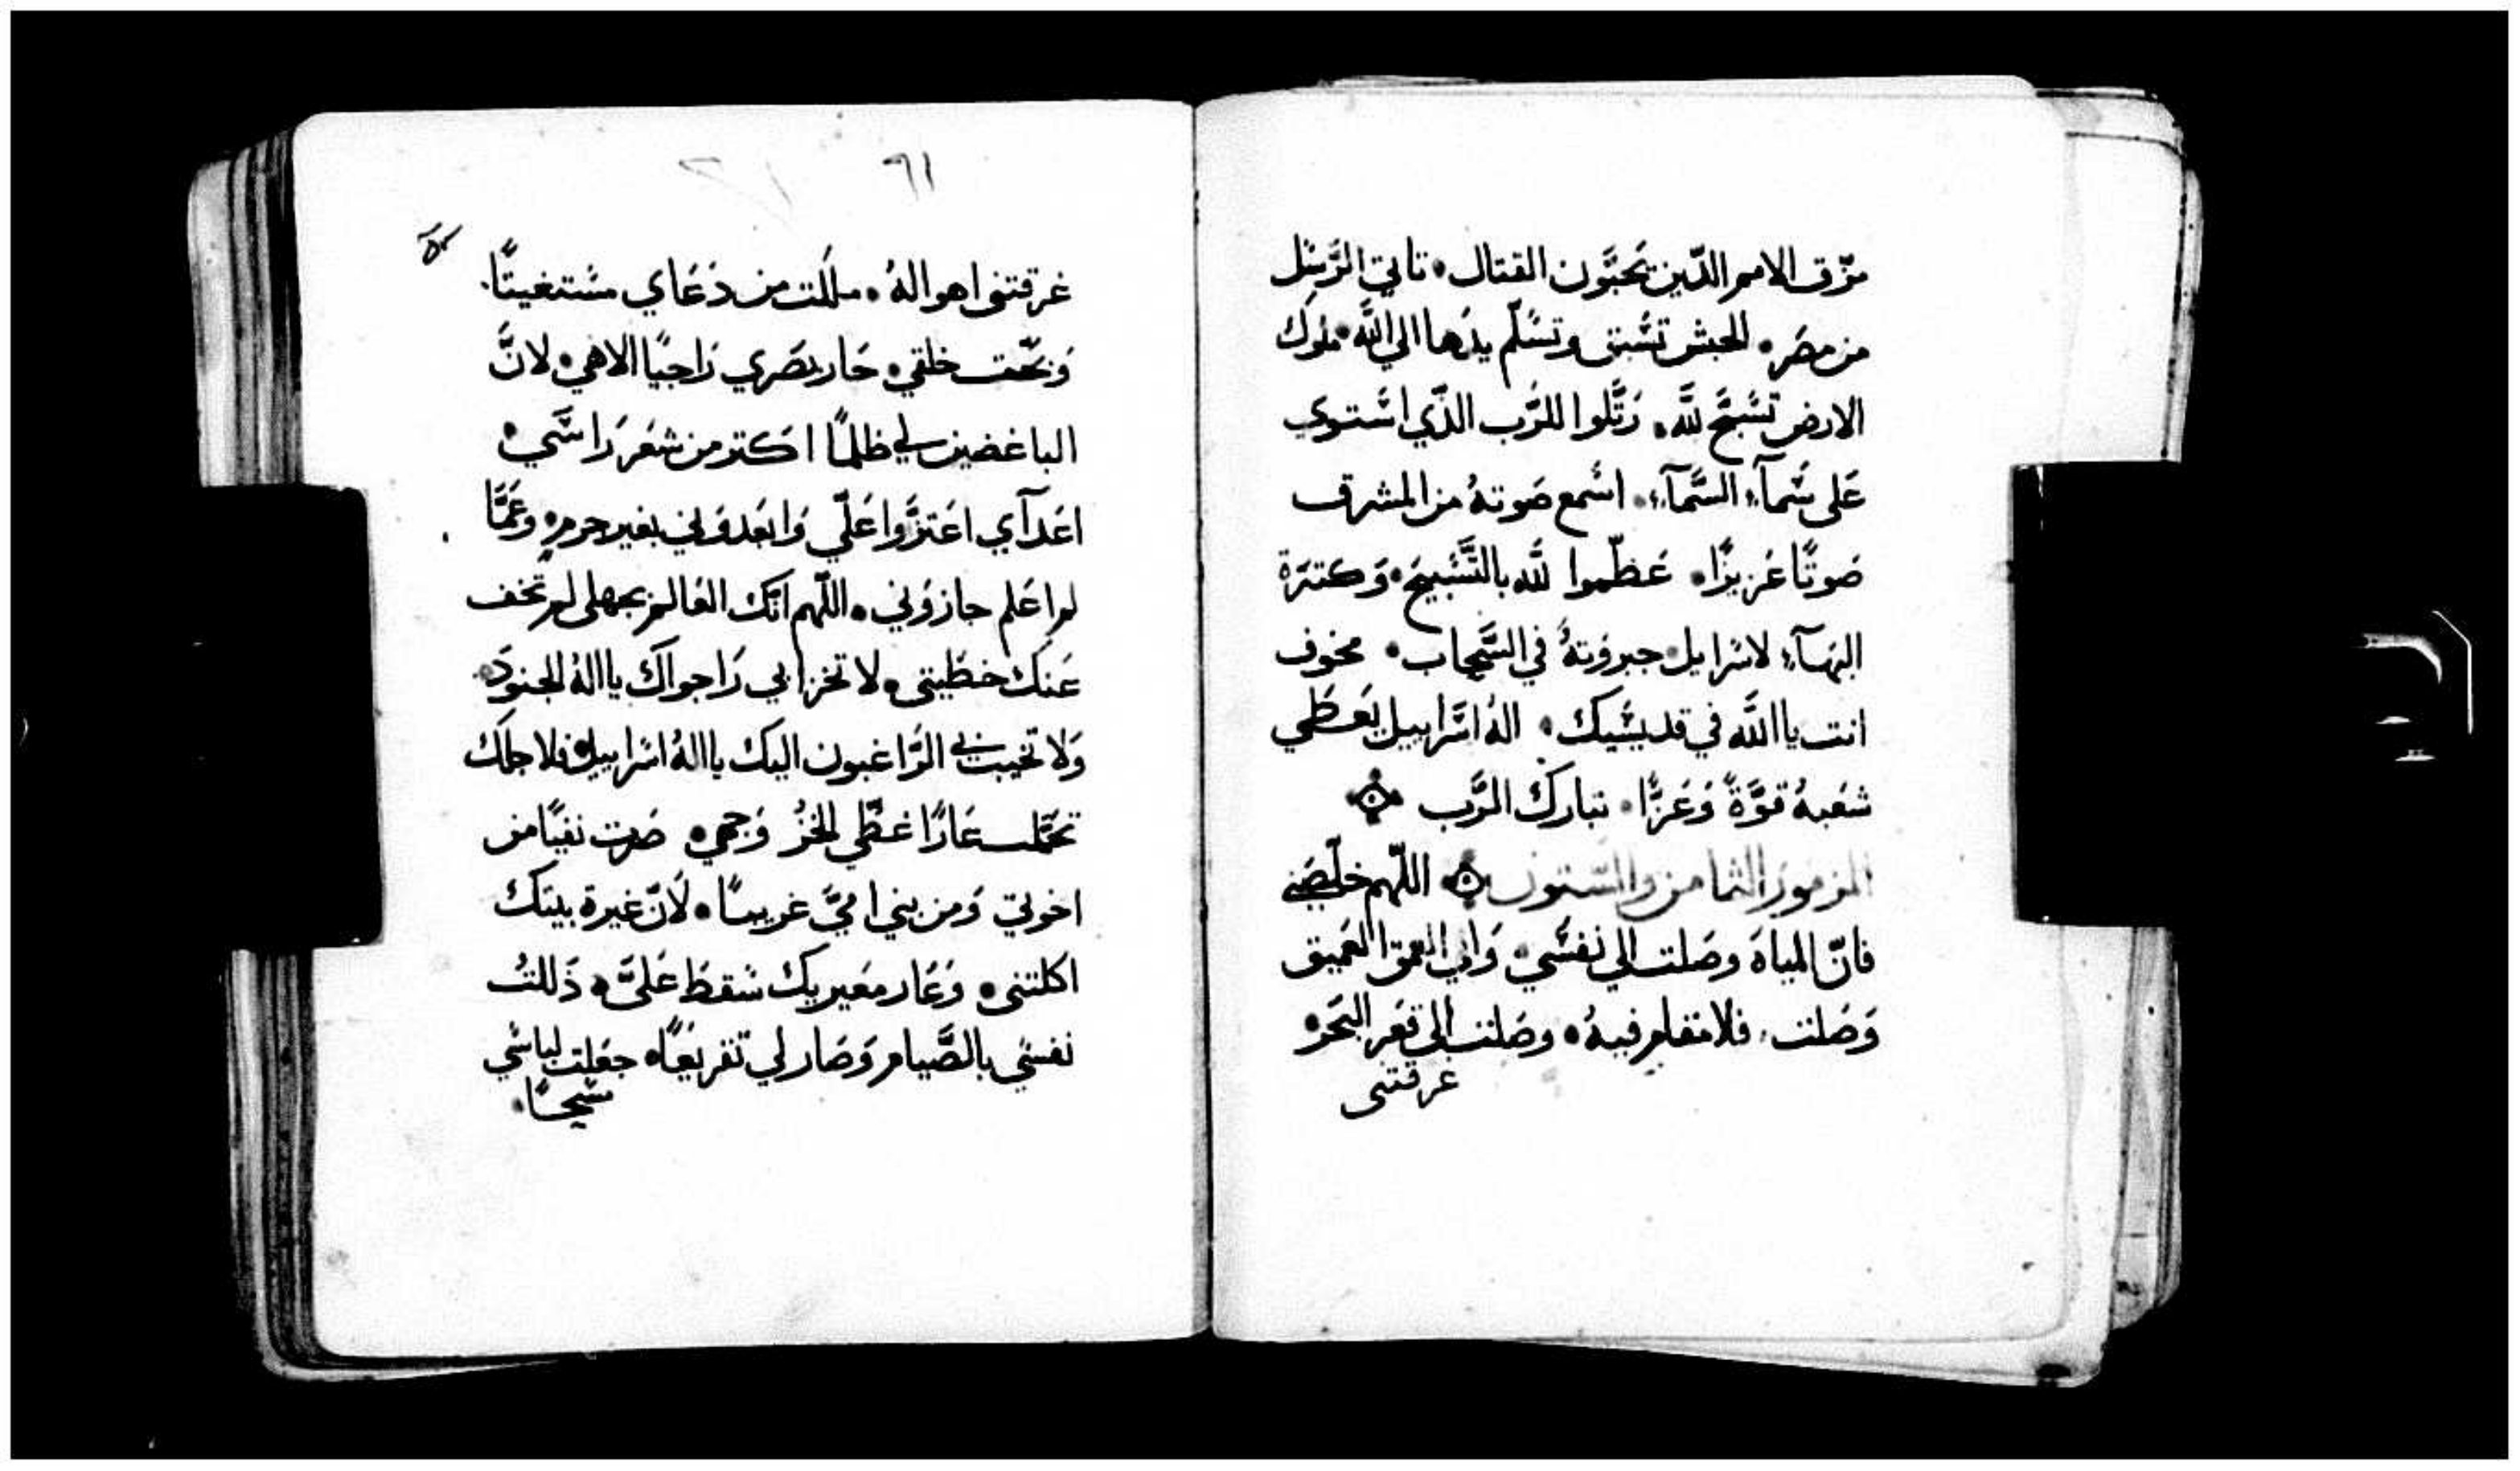 مزّق الامم الدّين تحبّون القتال • تاتي الرّسل
من مصر • الحبش تسبق وتسلّم يدها الي الله • ملوك
الارض تسبّح لله • رَتّلوا للرّب الدّي استوي
عَلي سَمآء السّمآء • اسمع صَوتهُ من المشرق
صَوتًا عَزيزًا • عَظّموا لله بالتّسبيح • وَكترَة
البهآء لاسرايل • جبروَتهُ في السّحاب • مخوف
انت يا الله في قديسيك • الهُ اسراييل يَعطي
شعَبهُ قوّةً وَعَزًا • تبارك الرّب
المزمور الثامن والستون اللّهم خلّصني
فانّ المياهَ وصَلت الي نفسي • وَالي العمق العَميق
وَصَلت • فلا مَقام فيهُ • وصَلت الي قعَر البحَر •
غرقتنى
٦١
غرقتني اهوالهُ • مللت من دَعَاي مستغيتًا •
وَبحّت خلقي • حَار بصَري رَاجيًا الاهي • لانّ
الباغضين لي ظلمًا اكتر من شعَر رَاسي •
اعَدآي اعَتزّوا عَلّي وَابعَدوَني بغير جرم • وعَمّا
لم اعَلم جازوَني • اللّهم انّك العَالم بجهلي لم تخف
عَنك خطيتي • لا تخزا بي رَاجواك يا الهُ الجنودَ •
وَلا تخيب بي الرّاغبون اليك يا الهُ اسراييل • فلاجلك
تحمّلت عَارًا غطّي الخزُ وَجهي • صَرت نفيًا من
اخوتي وَمن بني امّيَ غريبًا • لانّ غيرة بيتك
اكلتني • وَعَار مَعيريك سقطَ عَليّ • ذَللتُ
نفسي بالصّيام وَصَار لي تقريعًا • جعَلت لباسي
مسحًا •